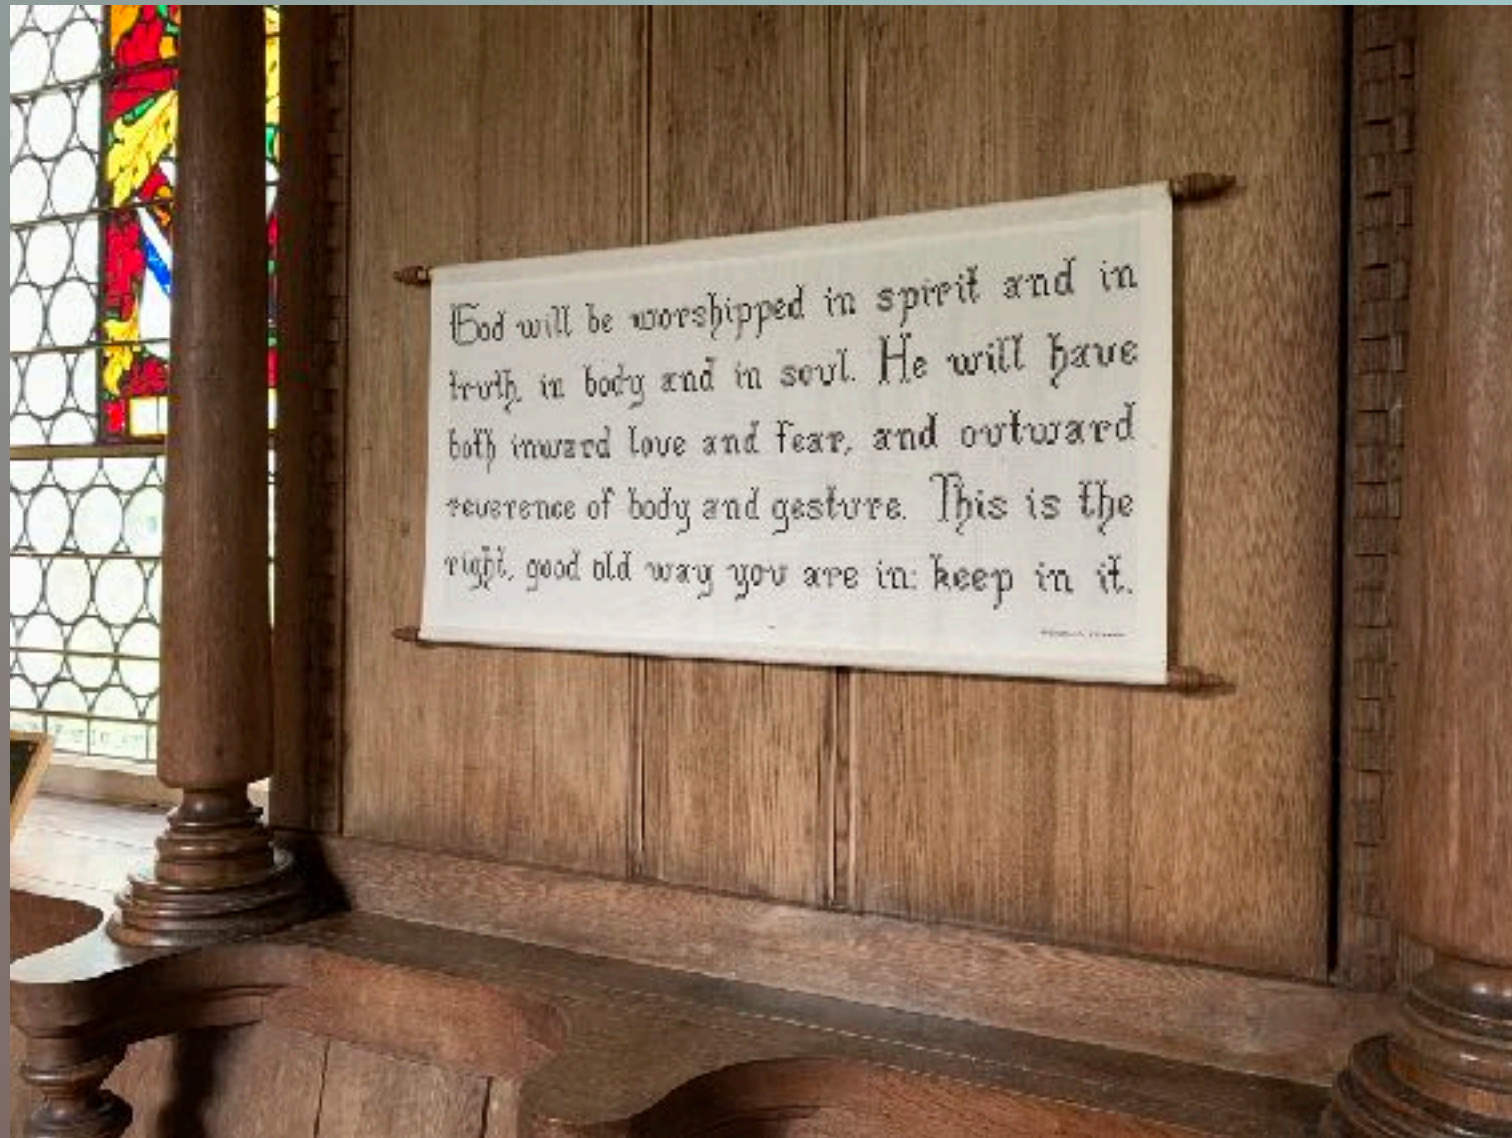 God will be worshipped in spirit and in
truth, in body and in soul. He will have
both inward love and fear, and outward
reverence of body and gesture. This is the
right, good old way you are in: keep in it.